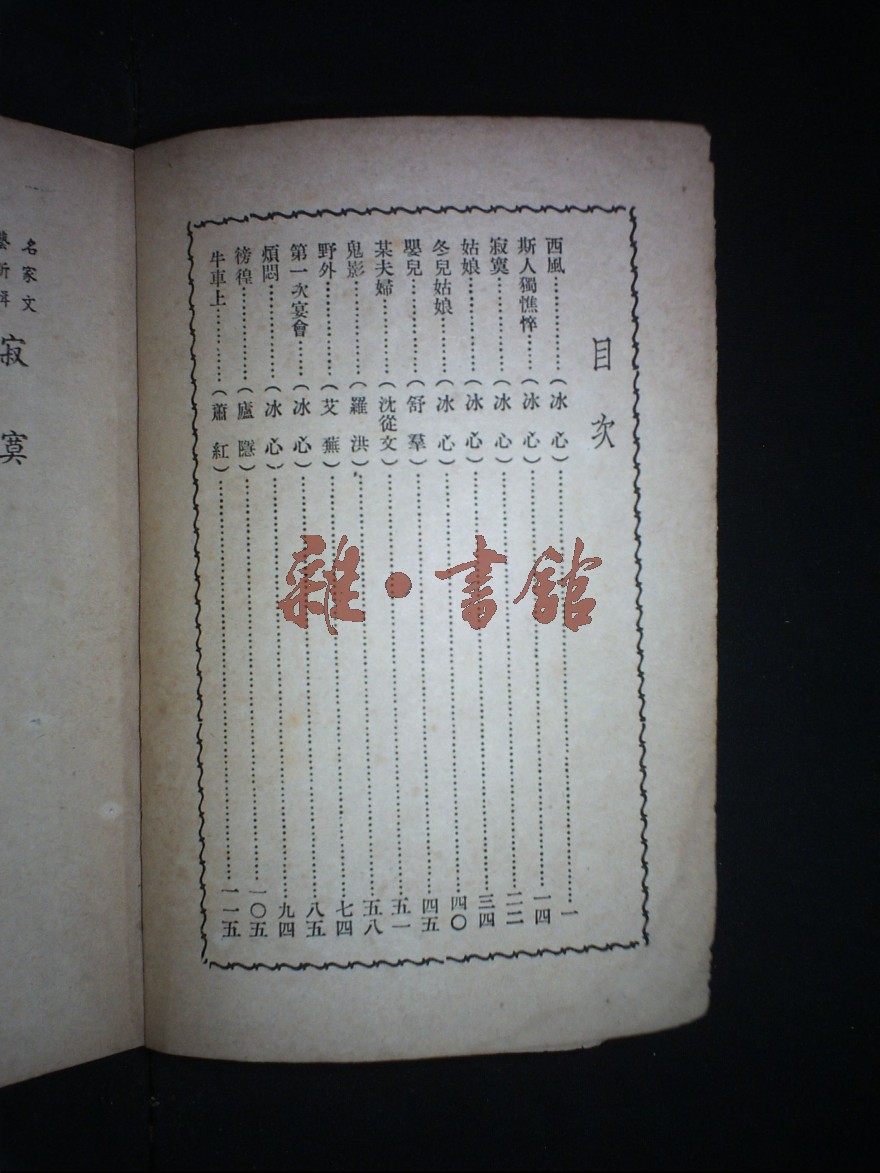 目次
西風……(冰心)……一
斯人獨憔悴……(冰心)……一四
寂寞……(冰心)……二二
姑娘……(冰心)……三四
冬兒姑娘……(冰心)……四〇
嬰兒……(舒羣)……四五
某夫婦……(沈從文)……五一
鬼影……(羅洪)……五八
野外……(艾蕪)……七四
第一次宴會……(冰心)……八五
煩悶……(冰心)……九四
徬徨……(廬隱)……一〇五
牛車上……(蕭紅)……一一五
名家文
寂寞
雜·書館